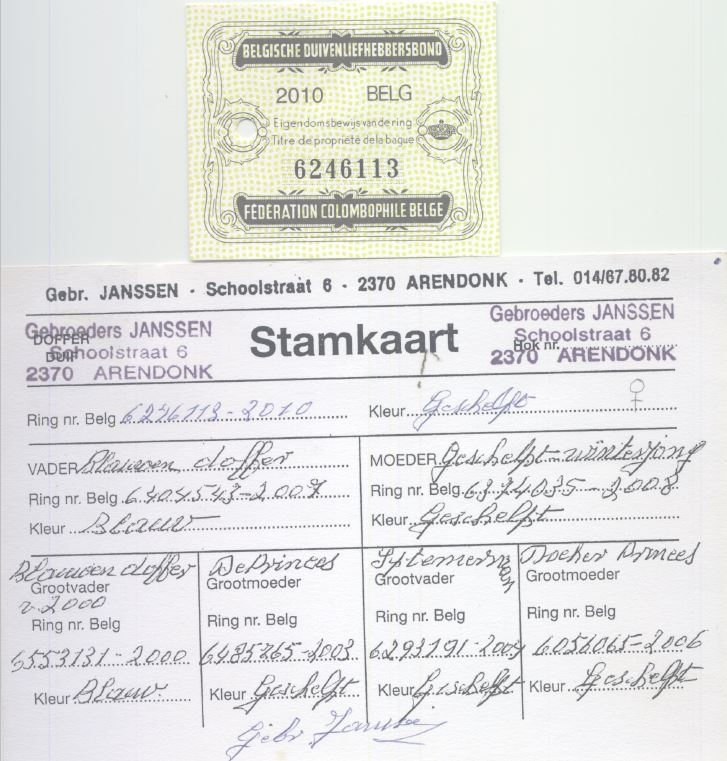 BELGISCHE DUIVENLIEFHEBBERSBOND
2010 BELG
Eigendomsbewijs van de ring
Titre de propriété de la bague
6246113
FÉDÉRATION COLOMBOPHILE BELGE
Gebr. JANSSEN · Schoolstraat 6 · 2370 ARENDONK · Tel. 014/67.80.82
Gebroeders JANSSEN
Schoolstraat 6
2370 ARENDONK
DOFFER
DUIF
Stamkaart
Gebroeders JANSSEN
Schoolstraat 6
2370 ARENDONK
Hok nr.
Ring nr. Belg 6246113-2010 Kleur Geschelpt ♀
VADER Blauwen doffer
Ring nr. Belg 6404543-2007
Kleur Blauw
MOEDER Geschelpt winterjong
Ring nr. Belg 6374035-2008
Kleur Geschelpt
Blauwen doffer
Grootvader
v. 2000
Ring nr. Belg
6553131-2000
Kleur Blauw
De Princes
Grootmoeder
Ring nr. Belg
6485265-2003
Kleur Geschelpt
Grootvader
Ring nr. Belg
Kleur Geschelpt
Docher Princes
Grootmoeder
Ring nr. Belg
6056065-2006
Kleur Geschelpt
Gebr. Janssen